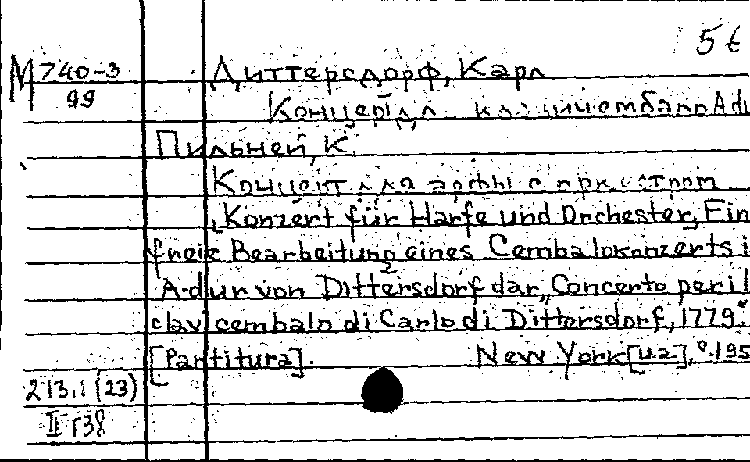 5 t
М 740-3
99
Диттерсдорф, Карл
Концерт для клавичембало A du
Пильней, К.
Концерт для арфы с оркестром
„Konzert für Harfe und Orchester, Ein
freie Bearbeitung eines Cembalokonzerts i
A-dur von Dittersdorf dar, „Concerto per il
clavicembalo di Carlo di Dittersdorf, 1779."
[Partitura]. New York [u.a], °.195
213.1 (23)
II г38